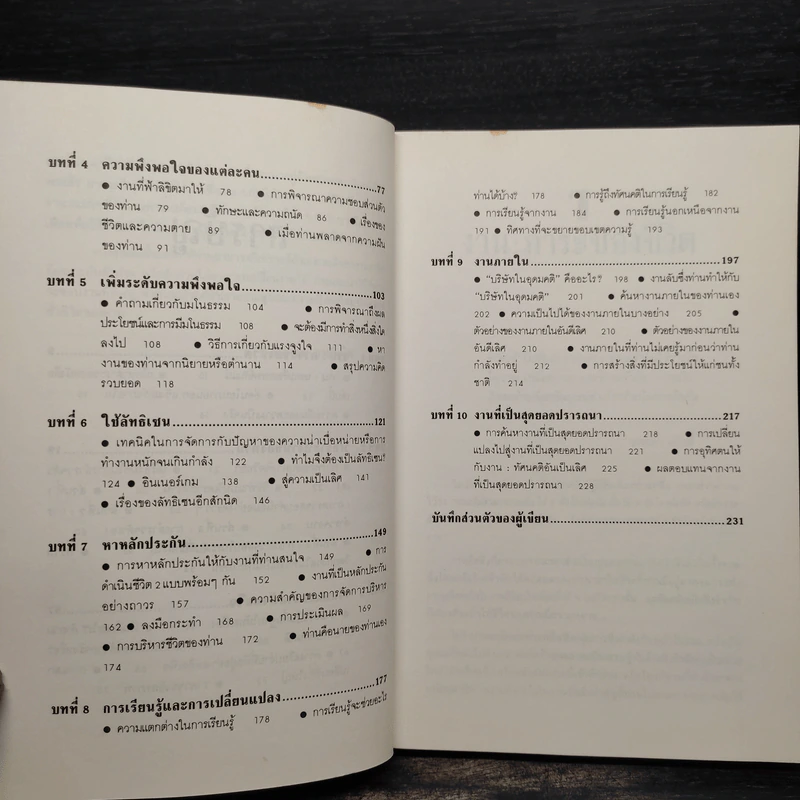 บทที่ 4 ความพึงพอใจของแต่ละคน....................77
● งานที่ฟ้าลิขิตมาให้ 78 ● การพิจารณาความชอบส่วนตัว
ของท่าน 79 ● ทักษะและความถนัด 86 ● เรื่องของ
ชีวิตและความตาย 89 ● เมื่อท่านพลาดจากความฝัน
ของท่าน 91
บทที่ 5 เพิ่มระดับความพึงพอใจ....................103
● คำถามเกี่ยวกับมโนธรรม 104 ● การพิจารณาถึงผล
ประโยชน์และการมีมโนธรรม 108 ● จะต้องมีการทำสิ่งหนึ่งสิ่งใด
ลงไป 108 ● วิธีการเกี่ยวกับแรงจูงใจ 111 ● หา
งานของท่านจากนิยายหรือตำนาน 114 ● สรุปความคิด
รวบยอด 118
บทที่ 6 ใช้ลัทธิเซน....................121
● เทคนิคในการจัดการกับปัญหาของความน่าเบื่อหน่ายหรือการ
ทำงานหนักจนเกินกำลัง 122 ● ทำไมจึงต้องเป็นลัทธิเซน?
124 ● อินเนอร์เกม 138 ● สู่ความเป็นเลิศ 141
● เรื่องของลัทธิเซนอีกสักนิด 146
บทที่ 7 หาหลักประกัน....................149
● การหาหลักประกันให้กับงานที่ท่านสนใจ 149 ● การ
ดำเนินชีวิต 2 แบบพร้อมๆ กัน 152 ● งานที่เป็นหลักประกัน
อย่างถาวร 157 ● ความสำคัญของการจัดการบริหาร
162 ● ลงมือกระทำ 168 ● การประเมินผล 169
● การบริหารชีวิตของท่าน 172 ● ท่านคือนายของท่านเอง
174
บทที่ 8 การเรียนรู้และการเปลี่ยนแปลง....................177
● ความแตกต่างในการเรียนรู้ 178 ● การเรียนรู้จะช่วยอะไร
ท่านได้บ้าง? 178 ● การรู้ถึงทัศนคติในการเรียนรู้ 182
● การเรียนรู้จากงาน 184 ● การเรียนรู้นอกเหนือจากงาน
191 ● ทิศทางที่จะขยายขอบเขตความรู้ 193
บทที่ 9 งานภายใน....................197
● "บริษัทในอุดมคติ" คืออะไร? 198 ● งานลับซึ่งท่านทำให้กับ
"บริษัทในอุดมคติ" 201 ● ค้นหางานภายในของท่านเอง
202 ● ความเป็นไปได้ของงานภายในบางอย่าง 205 ●
ตัวอย่างของงานภายในอันดีเลิศ 210 ● ตัวอย่างของงานภายใน
อันดีเลิศ 210 ● งานภายในที่ท่านไม่เคยรู้มาก่อนว่าท่าน
กำลังทำอยู่ 212 ● การสร้างสิ่งที่มีประโยชน์ให้แก่ชนทั้ง
ชาติ 214
บทที่ 10 งานที่เป็นสุดยอดปรารถนา....................217
● การค้นหางานที่เป็นสุดยอดปรารถนา 218 ● การเปลี่ยน
แปลงไปสู่งานที่เป็นสุดยอดปรารถนา 221 ● การอุทิศตนให้
กับงาน : ทัศนคติอันเป็นเลิศ 225 ● ผลตอบแทนจากงาน
ที่เป็นสุดยอดปรารถนา 228
บันทึกส่วนตัวของผู้เขียน....................231